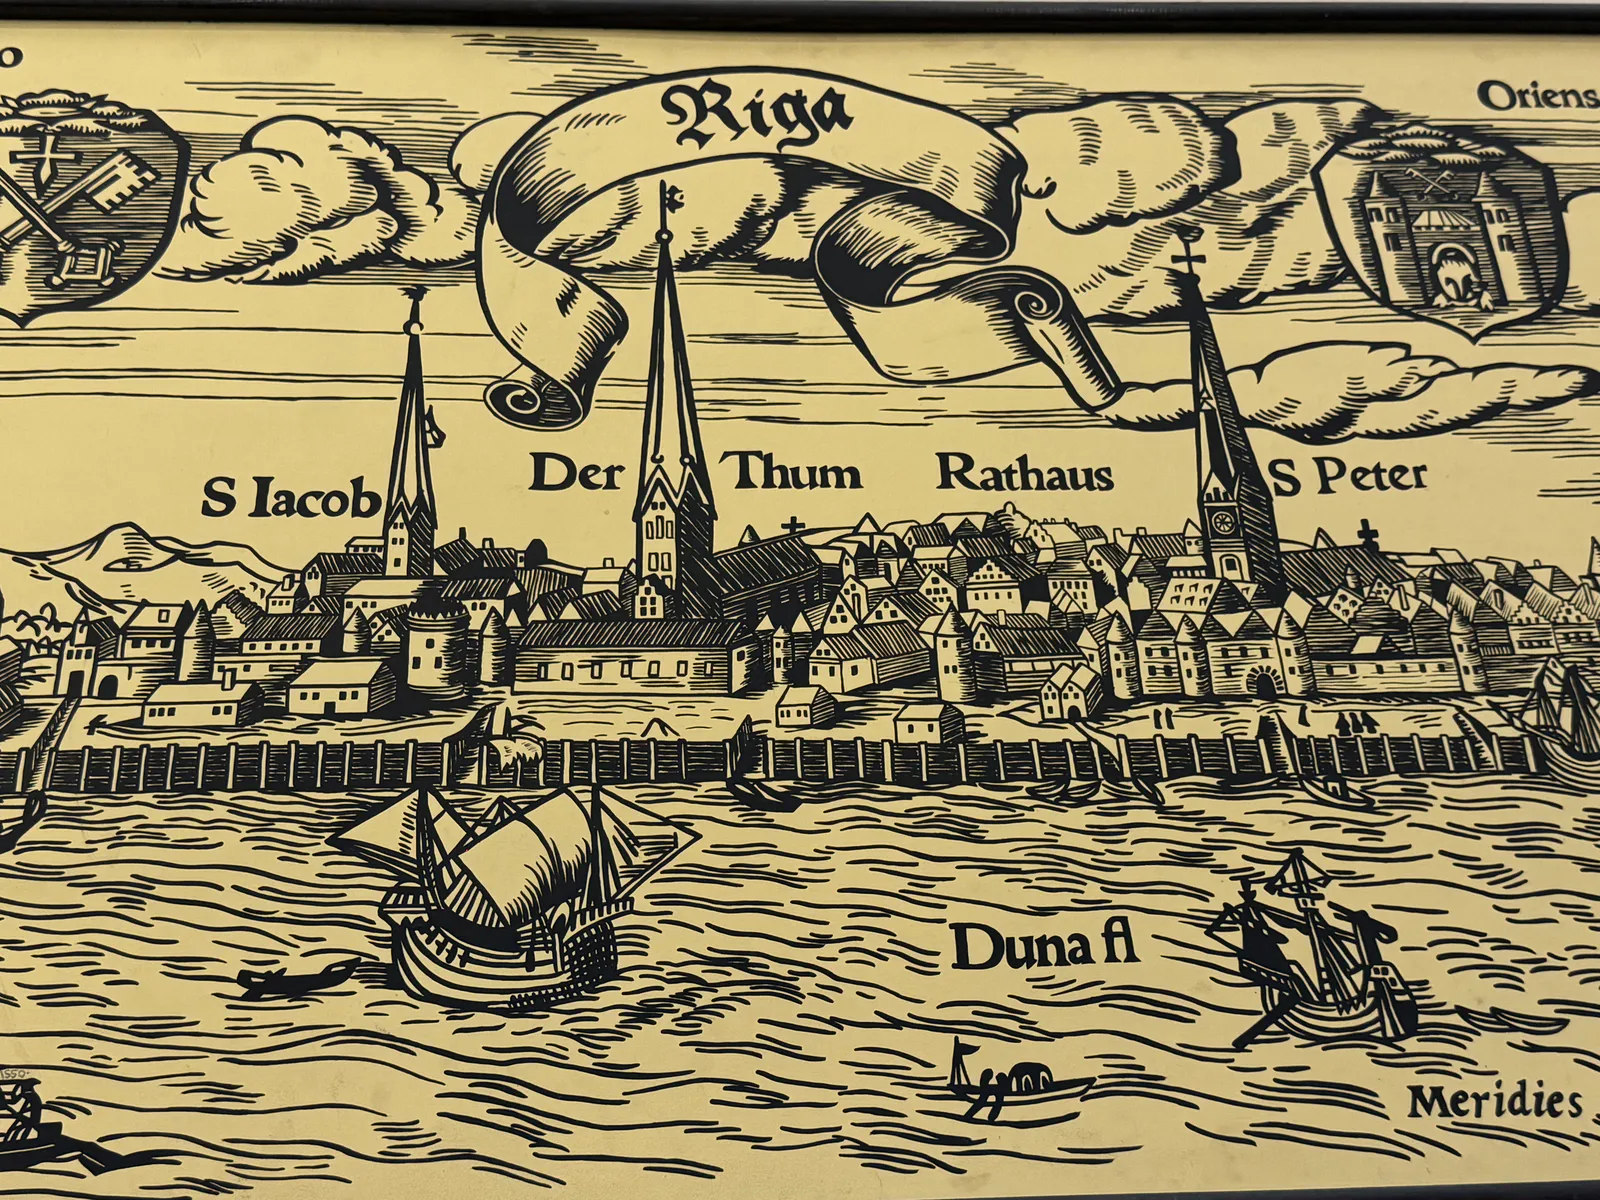 o
Riga
Oriens
S Iacob
Der Thum
Rathaus
S Peter
Duna fl
1550
Meridies